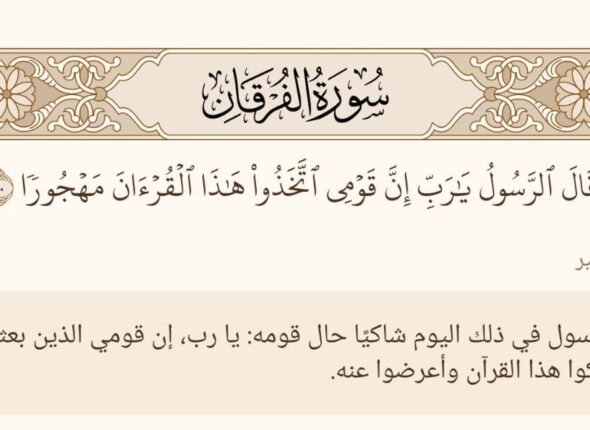 سُورَةُ الفُرۡقَانِ
قَالَ ٱلرَّسُولُ يَٰرَبِّ إِنَّ قَوۡمِي ٱتَّخَذُواْ هَٰذَا ٱلۡقُرۡءَانَ مَهۡجُورٗا
سول في ذلك اليوم شاكيًا حال قومه: يا رب، إن قومي الذين بعث
كوا هذا القرآن وأعرضوا عنه.